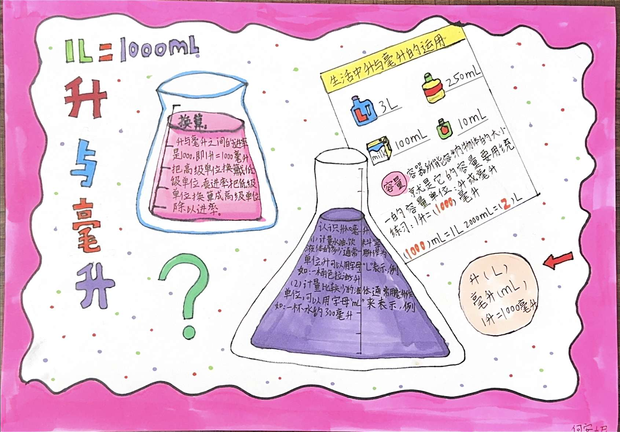 1L=1000mL
升与毫升
换算
升与毫升之间的进率
是1000,即1升=1000毫升
把高级单位换算成低
级单位,乘进率,把低级
单位换算成高级单位
除以进率.
生活中升与毫升的运用
3L
250mL
milk
100mL
10mL
容量
容器所能容纳物体的大小
就是它的容量,要用统
一的容量单位:升或毫升
练习:1升=(1000)毫升
(1000)mL=1L 2000mL=(2)L
认识升和毫升
单位,升可以用字母“L”表示,例
(2)计量比较少的液体,通常用毫升作
单位,可以用字母“mL”来表示,例
如:一杯水约300毫升
升(L)
毫升(mL)
1升=1000毫升